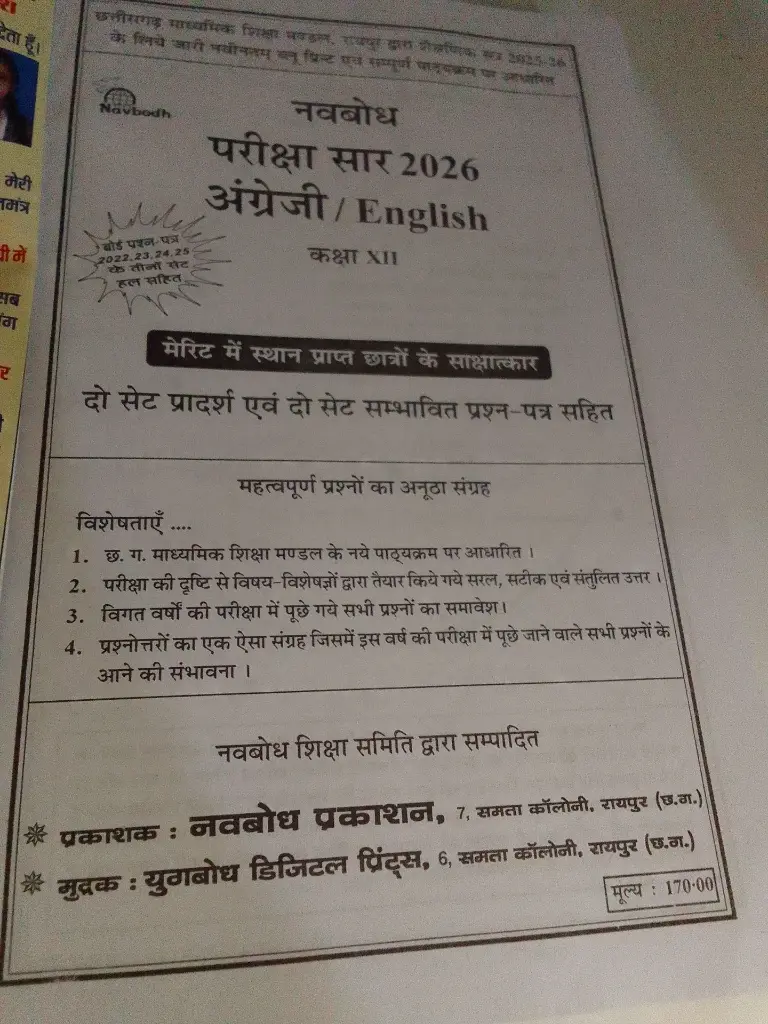 रा
देता हूँ।
मेरी
लमंत्र
पी में
सब
ंग
र
छत्तीसगढ़ माध्यमिक शिक्षा मण्डल, रायपुर द्वारा शैक्षणिक सत्र 2025-26
के लिये जारी नवीनतम ब्लू प्रिन्ट एवं सम्पूर्ण पाठ्यक्रम पर आधारित
Navbodh
नवबोध
परीक्षा सार 2026
अंग्रेजी / English
कक्षा XII
बोर्ड प्रश्न-पत्र
2022,23,24,25
के तीनों सेट
हल सहित
मेरिट में स्थान प्राप्त छात्रों के साक्षात्कार
दो सेट प्रादर्श एवं दो सेट सम्भावित प्रश्न-पत्र सहित
महत्वपूर्ण प्रश्नों का अनूठा संग्रह
विशेषताएँ ....
1. छ. ग. माध्यमिक शिक्षा मण्डल के नये पाठ्यक्रम पर आधारित ।
2. परीक्षा की दृष्टि से विषय-विशेषज्ञों द्वारा तैयार किये गये सरल, सटीक एवं संतुलित उत्तर ।
3. विगत वर्षों की परीक्षा में पूछे गये सभी प्रश्नों का समावेश।
4. प्रश्नोत्तरों का एक ऐसा संग्रह जिसमें इस वर्ष की परीक्षा में पूछे जाने वाले सभी प्रश्नों के
आने की संभावना ।
नवबोध शिक्षा समिति द्वारा सम्पादित
प्रकाशक : नवबोध प्रकाशन, 7, समता कॉलोनी, रायपुर (छ.ग.)
मुद्रक : युगबोध डिजिटल प्रिंट्स, 6, समता कॉलोनी, रायपुर (छ.ग.)
मूल्य : 170·00